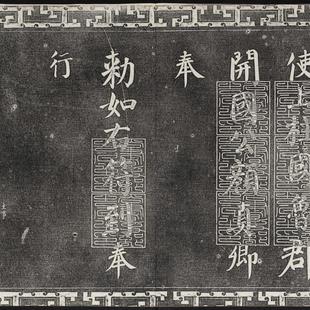 使上柱國魯郡
開國公顏真卿
奉
勅如右符到奉
行